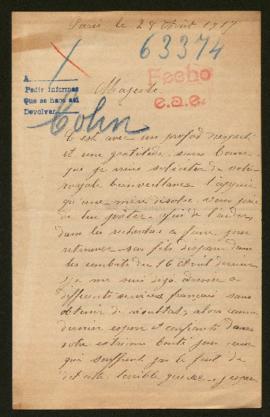 Paris le 29 Août 1917
63374
Fecho
e.a.e.
A
Pedir informes
Que se haga así
Devolver
Colin
Majesté
C'est avec un profond respect
et une gratitude sans borne
que je viens solliciter de votre
royale bienveillance l'appui
qu'une mère désolée vous prie
de lui prêter afin de l'aider
dans les recherches à faire pour
retrouver son fils disparu dans
les combats du 16 Avril dernier
je me suis déjà adressée à
différents services français sans
obtenir de résultats, alors comme
dernier espoir et confiante dans
votre extrême bonté pour ceux
qui souffrent par le fait de
cette terrible guerre, j'espère